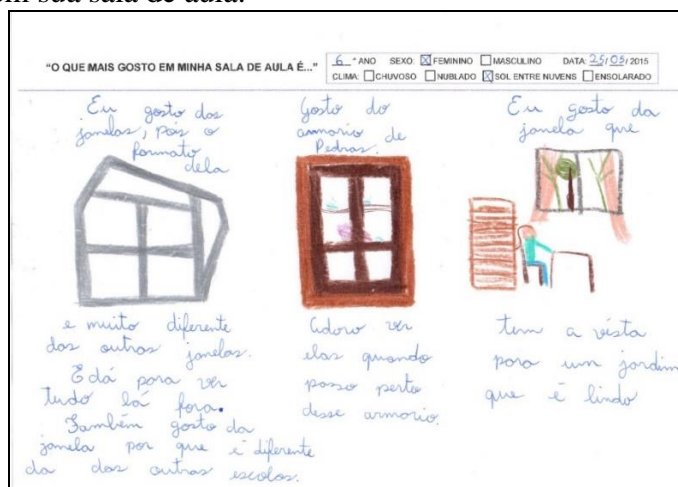 em sua sala de aula.
"O QUE MAIS GOSTO EM MINHA SALA DE AULA É..."
6 º ANO SEXO: FEMININO MASCULINO DATA: 25/05/2015
CLIMA: CHUVOSO NUBLADO SOL ENTRE NUVENS ENSOLARADO
Eu gosto das
janelas, pois o
formato
dela
e muito diferente
das outras janelas.
E dá para ver
tudo lá fora.
Também gosto da
janela por que é diferente
da das outras escolas.
Gosto do
armario de
Pedras.
Adoro ver
elas quando
passo perto
desse armario.
Eu gosto da
janela que
tem a vista
para um jardim
que é lindo